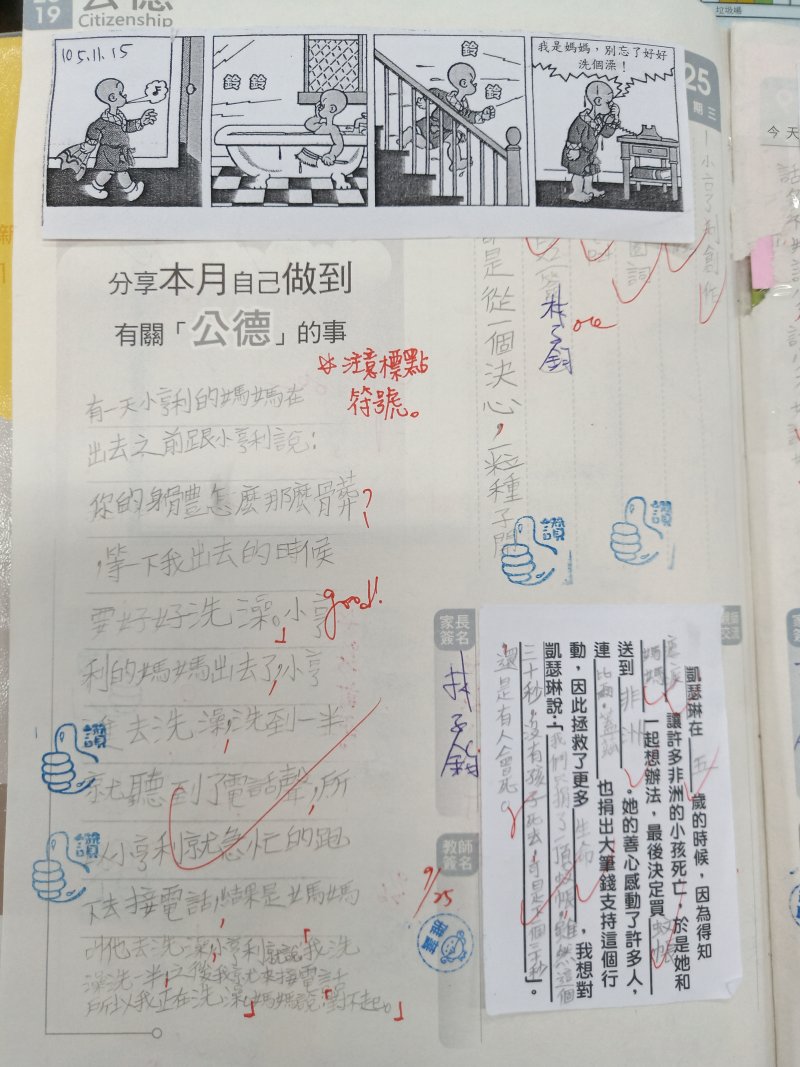 19
公德
Citizenship
垃圾場
105.11.15
鈴 鈴
鈴
鈴
我是媽媽，別忘了好好
洗個澡！
25
期 三
今天
分享本月自己做到
有關「公德」的事
注意標點
符號。
有一天小亨利的媽媽在
出去之前跟小亨利說：
你的身體怎麼那麼髒？
，等一下我出去的時候
要好好洗澡。」小亨
good!
利的媽媽出去了，小亨
去洗澡，洗到一半
就聽到了電話聲，所
以小亨利就急忙的跑
下去接電話，結果是媽媽
叫他去洗澡，小亨利就說「我洗
澡洗一半，之後我就來接電話
所以我正在洗澡」媽媽說「對不起。」
讚
讚
是從一個決心，一粒種子開
讚
讚
家長
簽名
教師
簽名
9/25
凱瑟琳在 五 歲的時候，因為得知
讓許多非洲的小孩死亡，於是她和
媽媽 一起想辦法，最後決定買 蚊帳
送到 非洲 。她的善心感動了許多人，
連 比爾蓋茲 也捐出大筆錢支持這個行
動，因此拯救了更多 生命 ，我想對
凱瑟琳說：「我們只捐了一頂蚊帳，雖然這個
三十秒，沒有孩子死去，可是下個三十秒」。
還是有人會死。